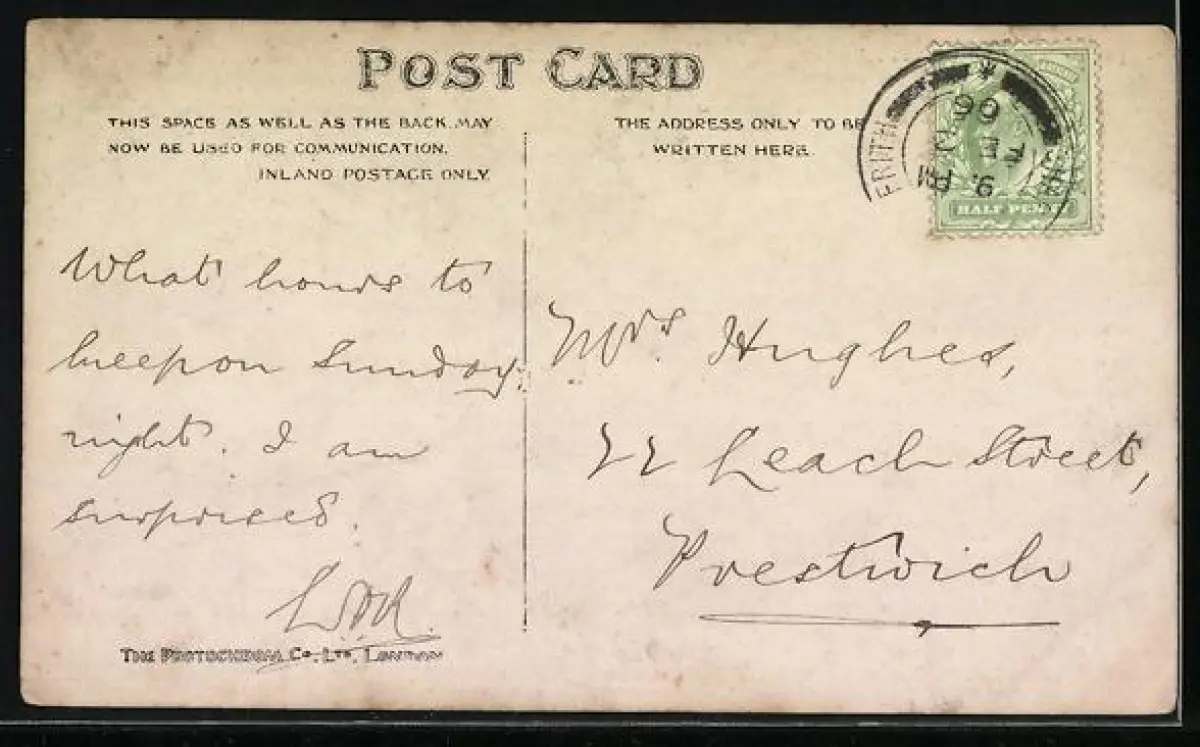 POST CARD
THIS SPACE AS WELL AS THE BACK MAY
NOW BE USED FOR COMMUNICATION.
INLAND POSTAGE ONLY.
THE ADDRESS ONLY TO BE
WRITTEN HERE.
HALF PENNY
What hours to
keep on Sunday
night. I am
surprised.
Mrs. Hughes,
22 Leach Street,
Prestwich
Co. Ltd., London